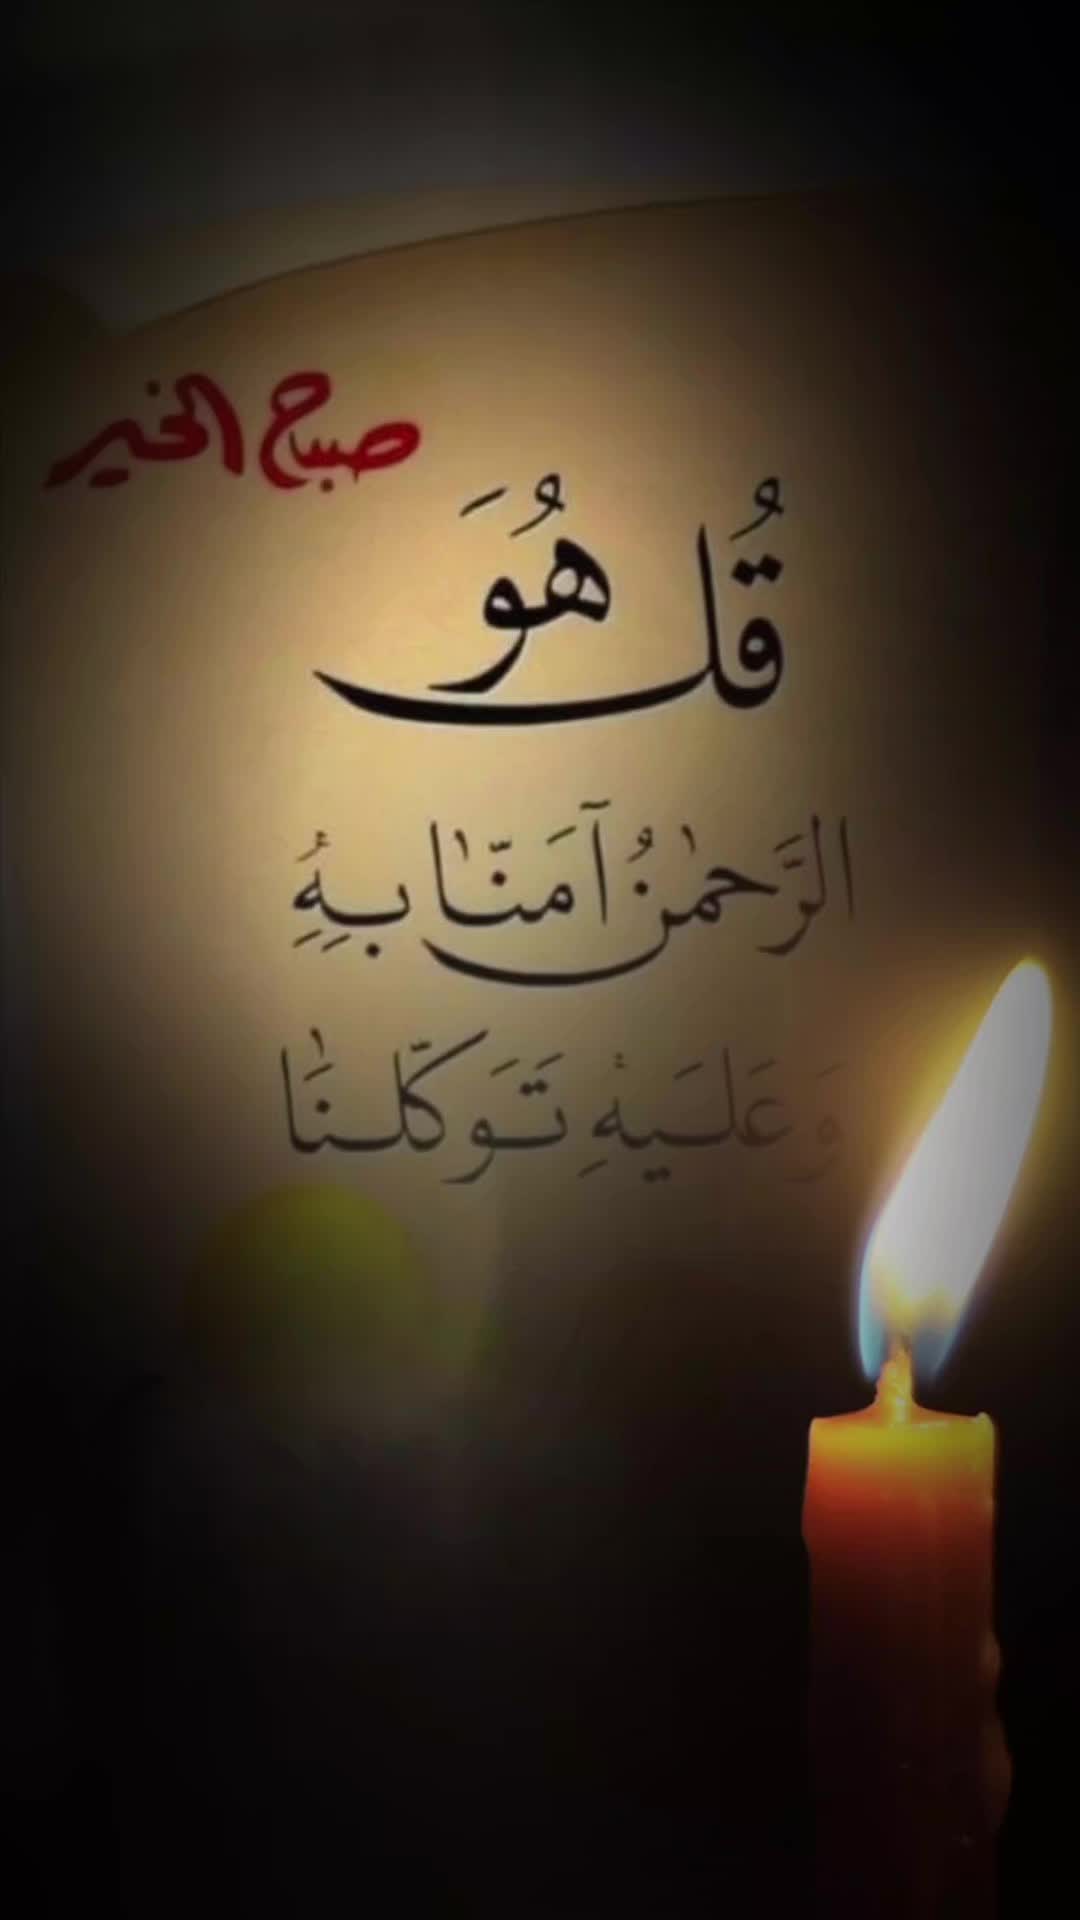 صباح الخير
قُل هُوَ
الرَّحمٰنُ آمَنّٰا بِهِ
وَعَلَيهِ تَوَكَّلنٰا